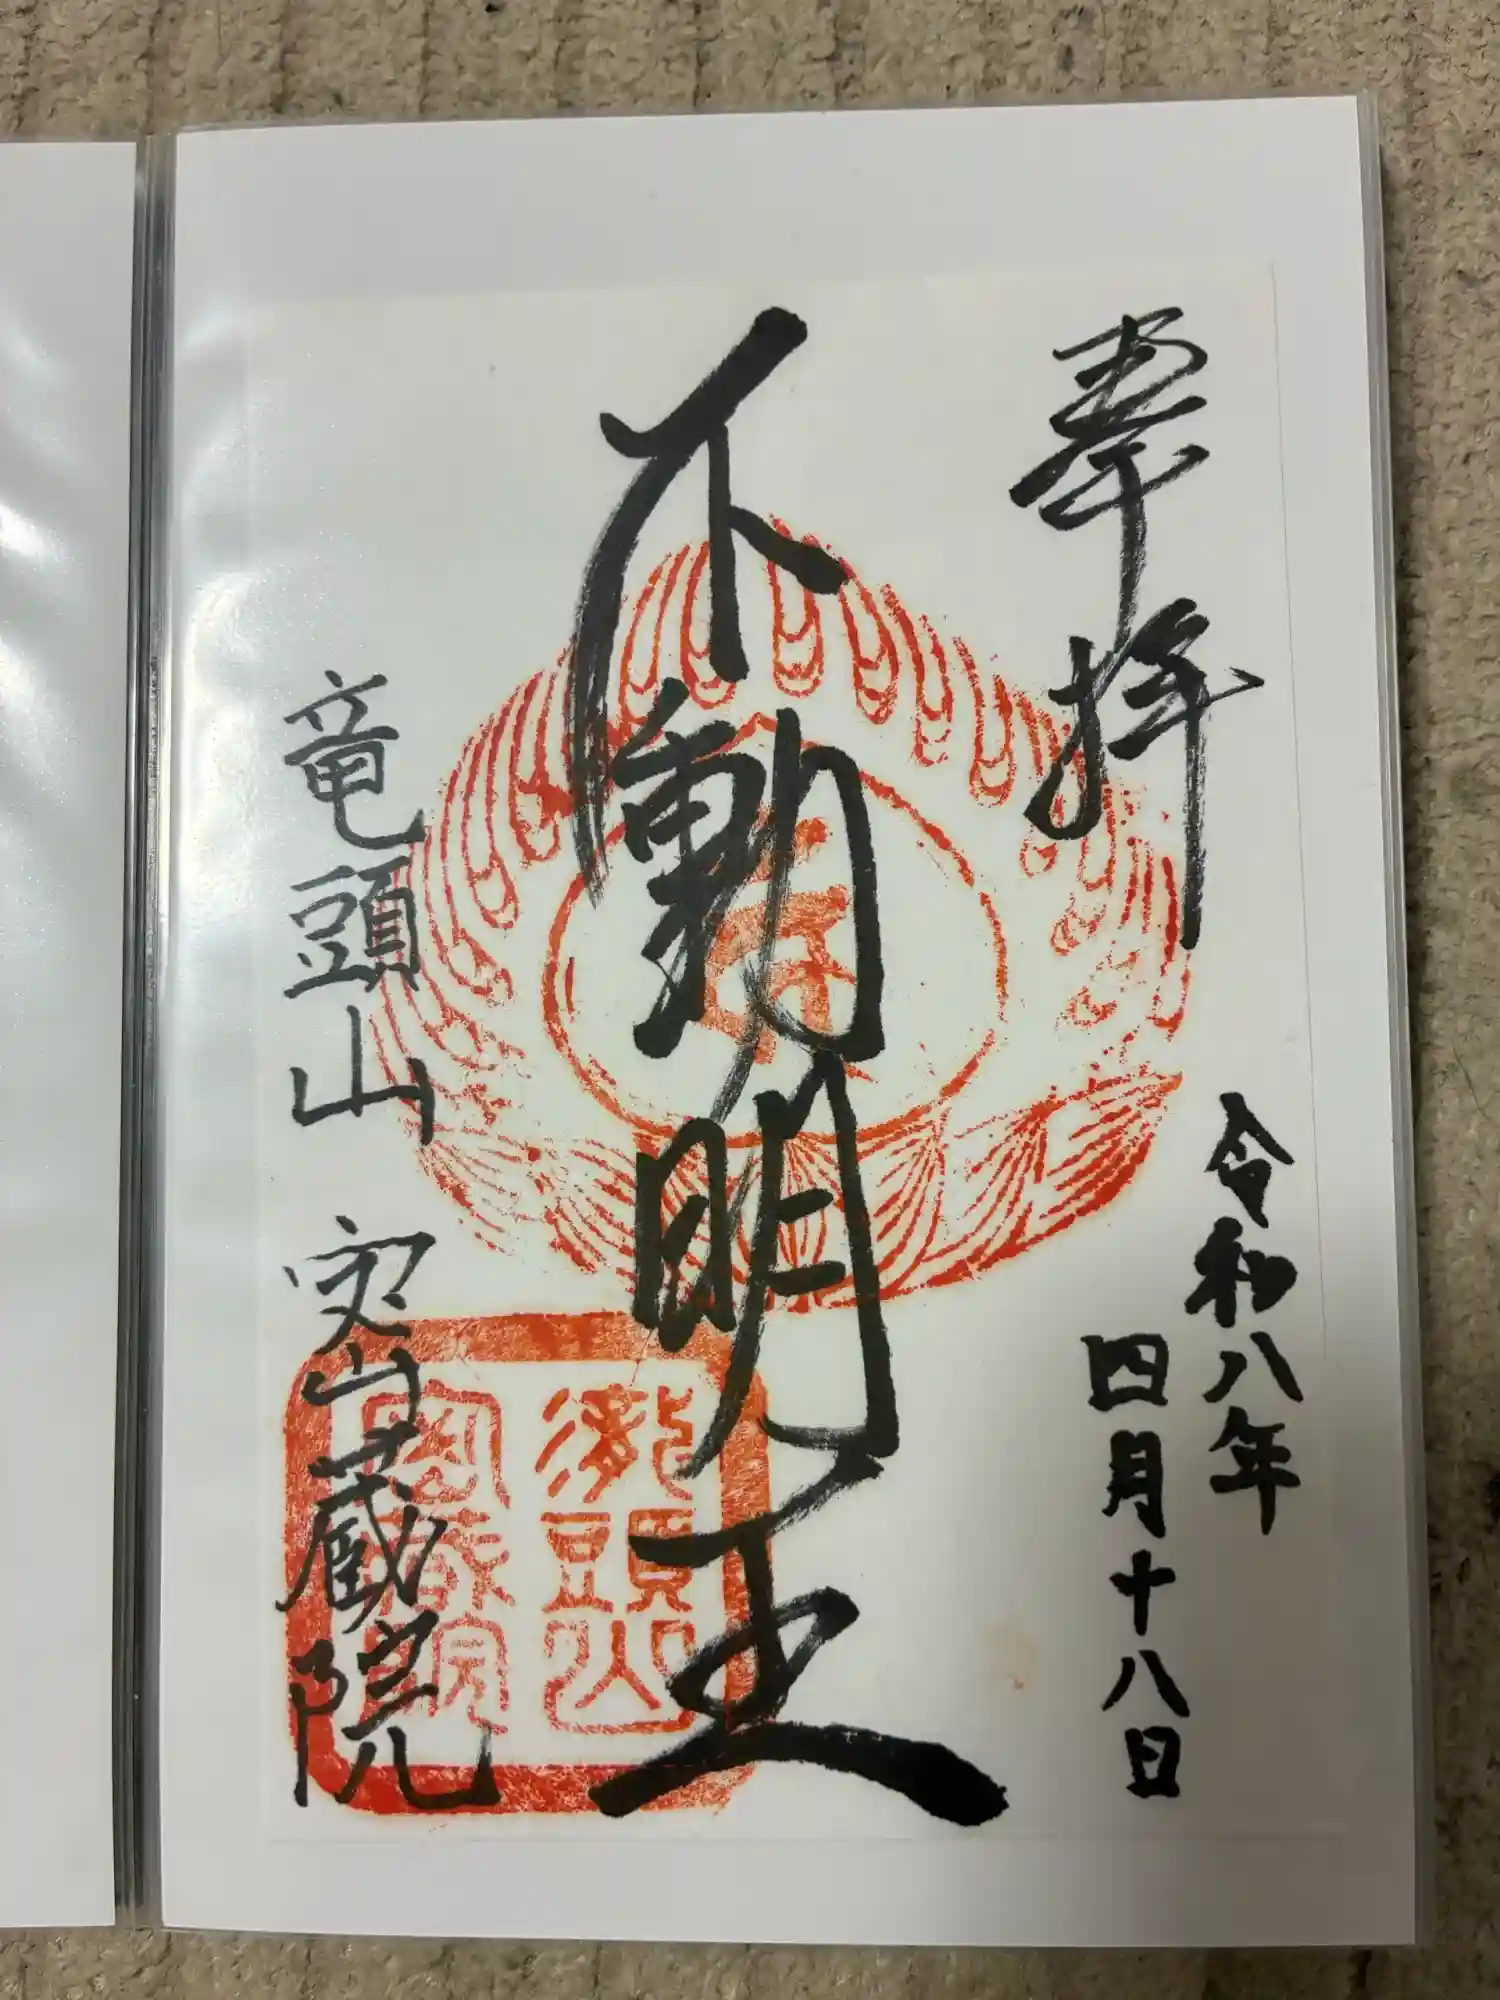 奉拝
令和八年
四月十八日
不動明王
竜頭山 密蔵院
頭山
密蔵院